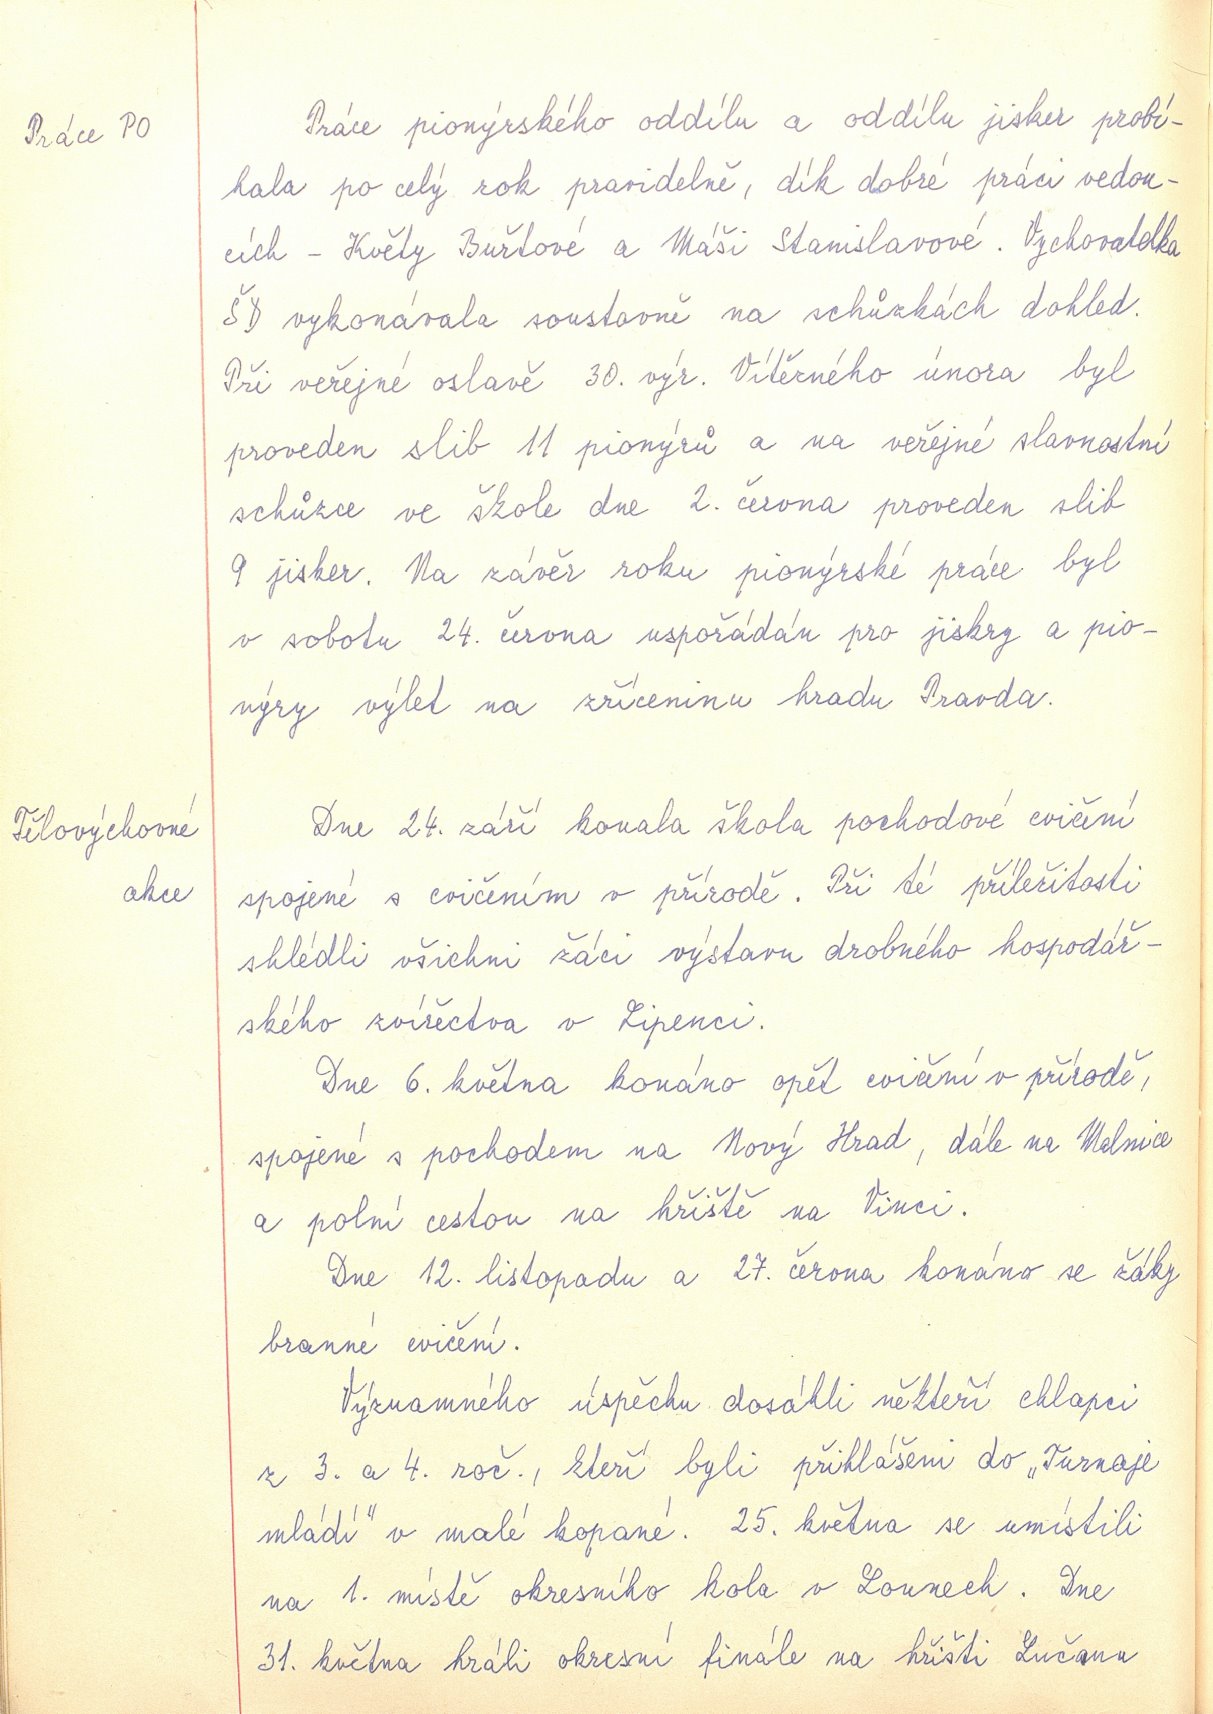 Práce PO
Práce pionýrského oddílu a oddílu jisker probí-
hala po celý rok pravidelně, dík dobré práci vedou-
cích – Květy Buřtové a Máši Stanislavové. Vychovatelka
ŠD vykonávala soustavně na schůzkách dohled.
Při veřejné oslavě 30. výr. Vítězného února byl
proveden slib 11 pionýrů a na veřejné slavnostní
schůzce ve škole dne 2. června proveden slib
9 jisker. Na závěr roku pionýrské práce byl
v sobotu 24. června uspořádán pro jiskry a pio-
nýry výlet na zříceninu hradu Pravda.
Tělovýchovné
akce
Dne 24. září konala škola pochodové cvičení
spojené s cvičením v přírodě. Při té příležitosti
shlédli všichni žáci výstavu drobného hospodář-
ského zvířectva v Lipenci.
Dne 6. května konáno opět cvičení v přírodě,
spojené s pochodem na Nový Hrad, dále na Melnice
a polní cestou na hřiště na Vinci.
Dne 12. listopadu a 27. června konáno se žáky
branné cvičení.
Významného úspěchu dosáhli někteří chlapci
z 3. a 4. roč., kteří byli přihlášeni do „Turnaje
mládí" v malé kopané. 25. května se umístili
na 1. místě okresního kola v Lounech. Dne
31. května hráli okresní finále na hřišti Lučanu